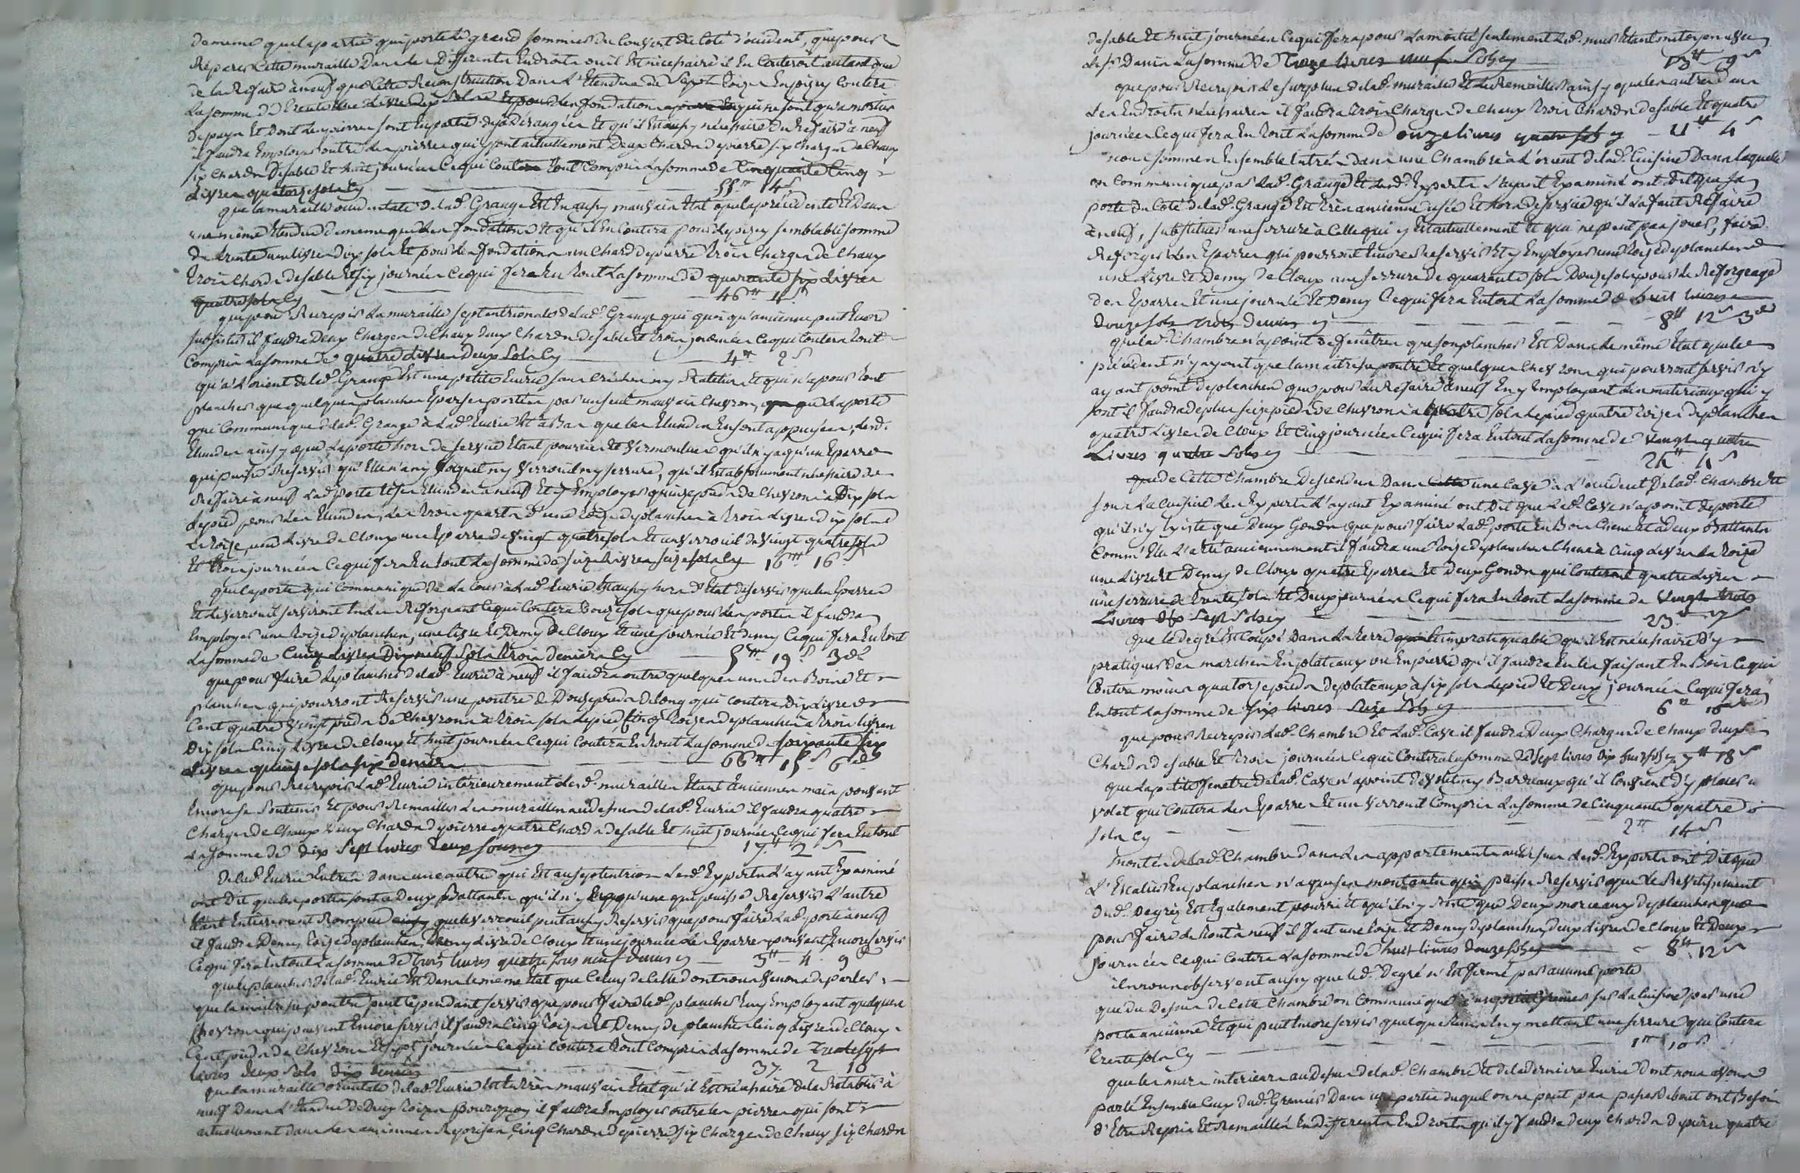 de meme que la partie qui porte le grand sommier du Couvert du Coté d'occident, que pour
Reparer Cette muraille dans les differents Endroits ou il Est nécéssaire il En Couteroit autant que
de la Refaire à neuf que Cette Reconstruction dans l'Etendue de Toizes En pizey Coutera
La somme de Trente une Livre dix Sols Et pour les fondations qui ne sont qu'a mortier
De payer Et dont les pierres sont En partie deja derangées Et qu'il Est aussy nécéssaire de Refaire à neuf
il faudra Employer outre les pierres qui y sont actuellement Deux Chards de pierre six Charges de Chaux
six Chards de sable Et huit journées Ce qui Coutera Tout Compris La somme de Cinquante Cinq
Livres quatorze sols Cy 55# 14s
que la muraille occidentale de lad. Grange Est En aussy mauvais Etat que la precedente Et dans
une même Etendue de meme que les fondations Et qu'il En Coutera pour le pizey semblable somme
de trente une livre dix sols Et pour les fondations un Chard de pierre Trois Charges de Chaux
Trois Chards de sable Et six journées Ce qui fera En Tout La somme de quarante six Livres
quatre sols Cy 46# 4s
que pour Recrepir La muraille septentrionale de lad. Grange qui quoi qu'ancienne peut Encore
subsister il faudra Deux Charges de Chaux deux Chards de sable Et Trois journées Ce qui Coutera Tout
Compris La somme de quatre Livres Deux Sols Cy 4# 2s
qu'à l'orient de lad. Grange Est une petite Ecurie sans Crêches ny Ratelier Et qui n'a pour Tout
plancher que quelques planches Eparses portées par un seul mauvais Chevron, que La porte
qui Communique de la Grange à Lad. Ecurie Est à Bas que les Elundes En sont appuyées, Lesd.
Elundes ainsy que La porte hors de service Etant pourries Et Vermoulues qu'il n'y a qu'un Eparre
qui puisse Reservir qu'Elle n'a ny Loquet ny Verrouil ny serrure, qu'il Est absolument nécéssaire de
Refaire à neuf Lad. porte Et ses Elundes à neuf Et d'y Employer quinze pieds de Chevrons à Dix sols
Le pied pour Les Elundes, Les Trois quarts d'une toize de planches à Trois Livres dix sols
La Toize, une Livre de Cloux une Eparre de Vingt quatre sols Et un verrouil de Vingt quatre sols
Et Trois journées Ce qui fera En Tout La somme de seize Livres seize sols Cy 16# 16s
que la porte qui Communique de la Cour à Lad. Ecurie Est aussy hors d'Etat de servir que les Eparres
Et le verrouil serviront En les Reforgeant Ce qui Coutera Douze sols que pour les portes il faudra
Employer une Toize de planches, une livre Et Demy de Cloux Et une journée Et demy Ce qui fera En Tout
La somme de Cinq Livres Dix neuf Sols Trois deniers Cy 5# 19s 3d
que pour faire Le plancher de lad. Ecurie à neuf il faudra outre quelques unes des Bonnes
planches qui pourront Reservir une poutre de Douze pieds de long qui Coutera dix Livres
Cent quatre Vingt pieds de Chevrons à Trois sols Le pied, Cinq Toizes de planches à Trois livres
Dix sols Cinq Livres de Cloux Et huit journées Ce qui Coutera En Tout La somme de soixante six
Livres quinze sols six deniers 66# 15s 6d
que pour Recrepir Lad. Ecurie interieurement Lesd. murailles Etant anciennes mais pouvant
Encore se soutenir Et pour Remailler Les murailles au dessus de lad. Ecurie il faudra quatre
Charges de Chaux Deux Chards de pierre quatre Chards de sable Et huit journées Ce qui fera En tout
La somme de dix Sept livres deux sous Cy 17# 2s
De lad. Ecurie Entrés dans une autre qui Est au septentrion Lesd. Experts L'ayant Examiné
ont Dit que les portes sont a Deux Battants qu'il n'y a qu'une qui puisse Reservir L'autre
Etant Entierement Rompue que le verrouil peut aussy Reservir que pour faire Lad. porte à neuf
il faudra Demy Toize de planches, Demy Livre de Cloux Et une journée Les Eparres pouvant Encore servir
Ce qui fera En tout La somme de Trois livres quatre sous neuf deniers Cy 3# 4 9d
que le plancher de lad. Ecurie Est Dans le meme Etat que Celuy de Celle dont nous Venons de parler
que la maitresse poutre peut Cependant servir que pour faire led. plancher En y Employant quelques
Chevrons qui peuvent Encore servir il faudra Cinq Toizes Et Demy de planches Cinq Livres de Cloux
Cent pieds de Chevrons Et sept journées Ce qui Coutera Tout Compris La somme de Trente sept
livres deux sols dix deniers 37 2 10
que la muraille orientale de lad. Ecurie Est En très mauvais Etat qu'il Est nécéssaire de la Retablir à
neuf Dans L'Etendue de Deux Toizes Bourgnon il faudra Employer outre les pierres qui sont
actuellement dans les anciennes Reprises Cinq Chards de pierre, six Charges de Chaux six Chards
de sable Et huit journées Ce qui fera pour La moitié seulement Led. mur Etant mitoyen avec
Le sr. Danis La somme de Treize livres neuf Sols Cy 13# 9s
que pour Recrepir Le surplus de lad. muraille Et La Remailler ainsy que les autres dans
Les Endroits nécéssaires il faudra Trois Charges de Chaux Trois Chards de sable Et quatre
journées Ce qui fera En Tout La somme de onze livres quatre sols Cy 11# 4s
nous sommes Ensemble Entrés Dans une Chambre à L'orient de lad. Cuisine Dans Laquelle
on Communique par Lad. Grange Et Lesd. Experts L'ayant Examiné ont dit que Sa
porte du Coté de lad. Grange Est très ancienne usée Et hors de service qu'il La faut Refaire
à neuf, substituer une serrure à Celle qui y Est actuellement Et qui ne peut pas jouer, faire
Reforger Les Eparres qui pourront Encore Reservir Et y Employer une Toize de planches
une Livre Et Demy de Cloux une serrure de quarante sols Douze sols pour Le Reforgeage
des Eparres Et une journée Et Demy Ce qui fera En tout La somme de huit livres
Douze sols trois deniers Cy 8# 12s 3d
que lad. Chambre n'a point de fenêtres que son plancher Est Dans Le même Etat que Le
précédent n'y ayant que La maitresse poutre Et quelques Chevrons qui pourront servir n'y
ayant point de planches que pour Le Refaire à neuf En y Employant Les materiaux qui y
sont il faudra de plus seize pieds de Chevrons à quatre sols Le pied quatre Toizes de planches
quatre Livres de Cloux Et Cinq journées Ce qui fera En tout La somme de Vingt quatre
Livres quatre Sols Cy 24# 4s
que de Cette Chambre Descendus Dans une Cave à L'occident de lad. Chambre Et
sous La Cuisine Les Experts L'ayant Examiné ont Dit que Lad. Cave n'a point de porte
qu'il n'y Existe que Deux Gonds que pour faire Lad. porte En Bois Chene Et à Deux Battants
Comme Elle L'a Eté anciennement il faudra une Toize de planches Chene à Cinq Livres La Toize
une Livre Et Demy de Cloux quatre Eparres Et Deux Gonds qui Couteront quatre Livres
une serrure de Trente sols Et Deux journées Ce qui fera En Tout La somme de Vingt trois
Livres Dix Sept Sols Cy 23 17s
Que Le degré Est Coupé Dans La Terre Et impratiquable qu'il Est nécéssaire D'y
pratiquer des marches En plateaux ou En pierre qu'il faudra En les faisant En Bois Ce qui
Coutera moins quatorze pieds de plateaux à six sols Le pied Et Deux journées Ce qui fera
En tout La somme de six livres Seize Sols Cy 6# 16s
que pour Recrepir Lad. Chambre Et Lad. Cave il faudra Deux Charges de Chaux Deux
Chards de sable Et Trois journées Ce qui Coutera La somme de Sept livres dix huit sols Cy 7# 18s
que La petite fenetre de lad. Cave n'a point de Volet ny Barreaux qu'il Convient d'y placer un
volet qui Coutera Les Eparres Et un Verrouil Compris La somme de Cinquante quatre
sols Cy 2# 14s
Montés de lad. Chambre dans Les appartements au dessus Lesd. Experts ont Dit que
L'Escalier En planches n'a qu'un montant qui puisse Reservir que Le Revetissement
Dud. Degrés Est Egalement pourri Et qu'il n'y Reste que Deux morceaux de planches que
pour faire Le Tout à neuf il faut une Toize Et Demy de planches, Deux Livres de Cloux Et Deux
journées Ce qui Coutera La somme de huit livres douze sols Cy 8# 12s
ils nous observent aussy que led. Degré n'Est fermé par aucune porte
que du Dessus de Cette Chambre on Communique à une Grenier sur La Cuisine par une
porte ancienne Et qui peut Encore servir quelque tems En y mettant une serrure qui Coutera
Trente sols Cy 1# 10s
que les murs interieurs au dessus de lad. Chambre Et de la derniere Ecurie Dont nous avons
parlé Ensemble Ceux dud. Grenier Dans une partie duquel on ne peut pas passer debout ont Besoin
d'Etre Repris Et Remaillés En differents Endroits qu'il y faudra deux Chards de pierre quatre